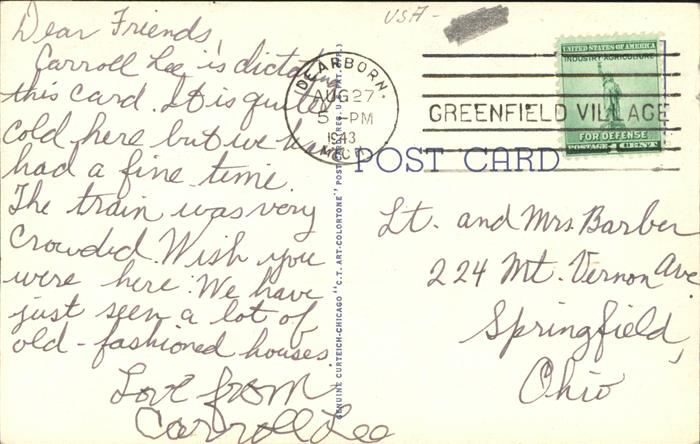 USA-
Dear Friends,
Carroll Lee is dictating
this card. It is quite
cold here but we have
had a fine time.
The train was very
crowded. Wish you
were here. We have
just seen a lot of
old-fashioned houses.
Love from
Carroll Lee
DEARBORN.
AUG 27
5 - PM
1943
MICH
GREENFIELD VILLAGE
UNITED STATES OF AMERICA
INDUSTRY AGRICULTURE
FOR DEFENSE
POSTAGE 1 CENT
POST CARD
Lt. and Mrs. Barber
224 Mt. Vernon Ave.
Springfield,
Ohio
GENUINE CURTEICH-CHICAGO "C.T. ART-COLORTONE" POST CARD (REG. U.S. PAT. OFF.)